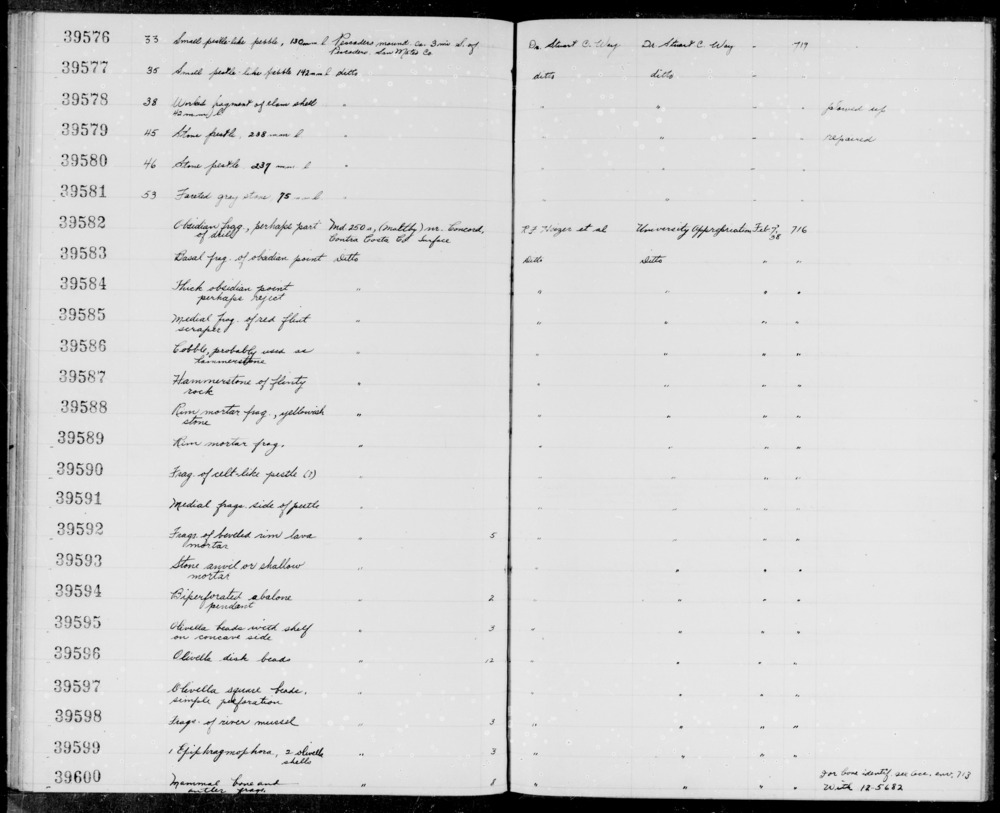 39576 33 Small pestle-like pebble, 130mm l Pescadero mound, ca. 3 mi S. of Dr. Stuart C. Way Dr Stuart C. Way - 719
Pescadero. San Mateo Co
39577 35 Small pestle-like pebble 142mm l ditto ditto ditto -
39578 38 Worked fragment of clam shell " " " - " plowed up
40mm l
39579 45 Stone pestle, 238 mm l " " " - " repaired
39580 46 Stone pestle 237 mm l " " " - "
39581 53 Faceted gray stone, 75 mm l " " " - "
39582 Obsidian frag., perhaps part Md. 250a, (Maltby) nr. Concord, R F Heizer et al University Appropriation Feb 7, 716
of drill Contra Costa Co Surface 38
39583 Basal frag. of obsidian point Ditto Ditto Ditto " "
39584 Thick obsidian point " " " " "
perhaps reject
39585 Medial frag. of red flint " " " " "
scraper
39586 Cobble, probably used as " " " " "
hammerstone
39587 Hammerstone of flinty " " " " "
rock
39588 Rim mortar frag., yellowish " " " " "
stone
39589 Rim mortar frag. " " " " "
39590 Frag. of celt-like pestle (?) " " " " "
39591 Medial frags. side of pestle " " " " "
39592 Frags. of bevelled rim lava " 5 " " " "
mortar
39593 Stone anvil or shallow " " " " "
mortar
39594 Biperforated abalone " 2 " " " "
pendant
39595 Olivella beads with shelf " 3 " " " "
on concave side
39596 Olivella disk beads " 12 " " " "
39597 Olivella square beads, " " " " "
simple perforation
39598 Frags. of river mussel " 3 " " " "
39599 1 Epiphragmophora, 2 olivella " 3 " " " "
shells
39600 Mammal bone and " 8 " " " " For bone identif. see acc. env. 713
antler frags. With 12-5682